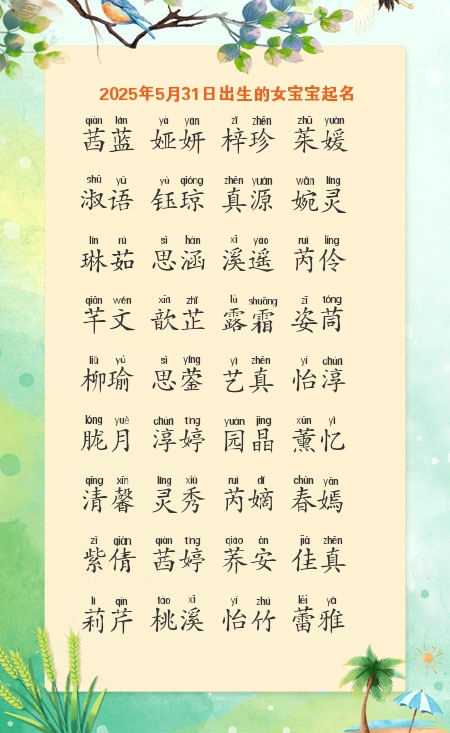 2025年5月31日出生的女宝宝起名
qiàn lán yà yán zǐ zhēn zhū yuán
茜蓝 娅妍 梓珍 茱媛
shū yǔ yù qióng zhēn yuán wǎn líng
淑语 钰琼 真源 婉灵
lín rú sī hán xī yáo ruì líng
琳茹 思涵 溪遥 芮伶
qiān wén xīn zhǐ lù shuāng zī tóng
芊文 歆芷 露霜 姿茼
liǔ yú sī yíng yì zhēn yí chún
柳瑜 思蓥 艺真 怡淳
lóng yuè chún tíng yuán jīng xūn yì
胧月 淳婷 园晶 薰忆
qīng xīn líng xiù ruì dí chūn yān
清馨 灵秀 芮嫡 春嫣
zǐ qiàn qiàn tíng qiáo ān jiā zhēn
紫倩 茜婷 荞安 佳真
lì qín táo xī yí zhú lěi yǎ
莉芹 桃溪 怡竹 蕾雅